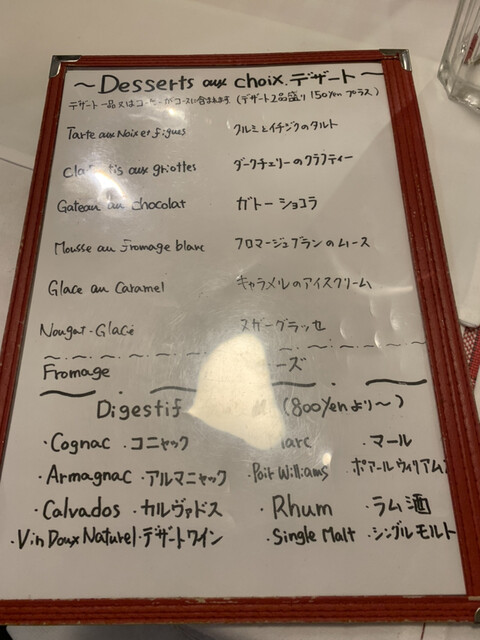 ~Desserts aux choix.デザート~
デザート一品又はコーヒーがコースに含まれます (デザート2品盛り 150yen プラス)
Tarte aux Noix et figues クルミとイチジクのタルト
aux griottes ダークチェリーのクラフティー
Gateau au chocolat ガトー ショコラ
Mousse au Fromage blanc フロマージュブランのムース
Glace au Caramel キャラメルのアイスクリーム
Nougat-Glacé ヌガーグラッセ
Fromage ーズ
Digestif (800yenより~)
・Cognac ・コニャック arc ・マール
・Armagnac ・アルマニャック ・Poir Williams ・ポアールウィリアムズ
・Calvados ・カルヴァドス ・Rhum ・ラム酒
・Vin Doux Naturel ・デザートワイン ・Single Malt ・シングルモルト